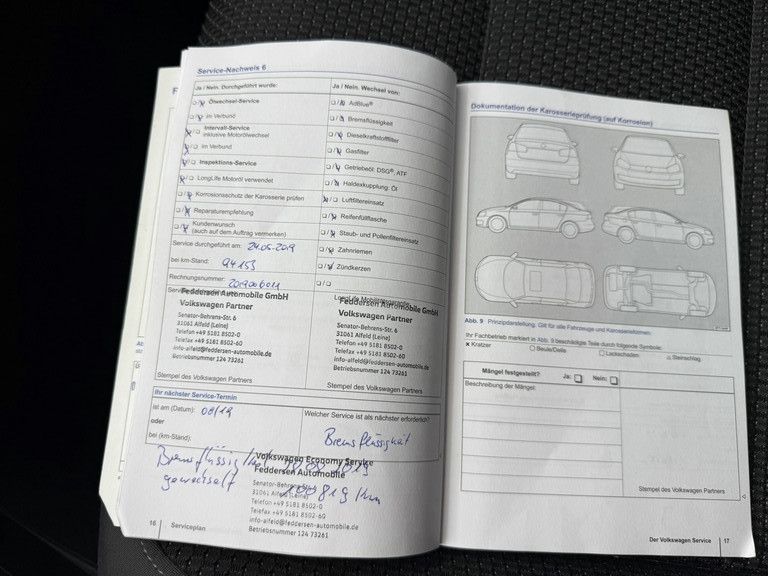 Service-Nachweis 6
Ja / Nein. Durchgeführt wurde:
Ölwechsel-Service
im Verbund
Intervall-Service
inklusive Motorölwechsel
im Verbund
Inspektions-Service
LongLife Motoröl verwendet
Korrosionsschutz der Karosserie prüfen
Reparaturempfehlung
Kundenwunsch
(auch auf dem Auftrag vermerken)
Service durchgeführt am: 24.05.2019
bei km-Stand: 94153
Rechnungsnummer: 2019006011
Feddersen Automobile GmbH
Volkswagen Partner
Senator-Behrens-Str. 6
31061 Alfeld (Leine)
Telefon +49 5181 8502-0
Telefax +49 5181 8502-60
info-alfeld@feddersen-automobile.de
Betriebsnummer 124 73261
Stempel des Volkswagen Partners
Ja / Nein. Wechsel von:
AdBlue®
Bremsflüssigkeit
Dieselkraftstofffilter
Gasfilter
Getriebeöl: DSG®, ATF
Haldexkupplung: Öl
Luftfiltereinsatz
Reifenfüllflasche
Staub- und Pollenfiltereinsatz
Zahnriemen
Zündkerzen
Feddersen Automobile GmbH
Volkswagen Partner
Senator-Behrens-Str. 6
31061 Alfeld (Leine)
Telefon +49 5181 8502-0
Telefax +49 5181 8502-60
info-alfeld@feddersen-automobile.de
Betriebsnummer 124 73261
Stempel des Volkswagen Partners
Ihr nächster Service-Termin
Ist am (Datum): 08/19
oder
bei (km-Stand):
Welcher Service ist als nächster erforderlich?
Bremsflüssigkeit
Bremsflüssigkeit
gewechselt
100819 km
Volkswagen Economy Service
Feddersen Automobile
Senator-Behrens-Str. 6
31061 Alfeld (Leine)
Telefon +49 5181 8502-0
Telefax +49 5181 8502-60
info-alfeld@feddersen-automobile.de
Betriebsnummer 124 73261
16 Serviceplan
Dokumentation der Karosserieprüfung (auf Korrosion)
Abb. 9 Prinzipdarstellung. Gilt für alle Fahrzeuge und Karosserieformen.
Ihr Fachbetrieb markiert in Abb. 9 beschädigte Teile durch folgende Symbole:
× Kratzer □ Beule/Delle □ Lackschaden △ Steinschlag
Mängel festgestellt? Ja: Nein:
Beschreibung der Mängel:
Stempel des Volkswagen Partners
Der Volkswagen Service 17